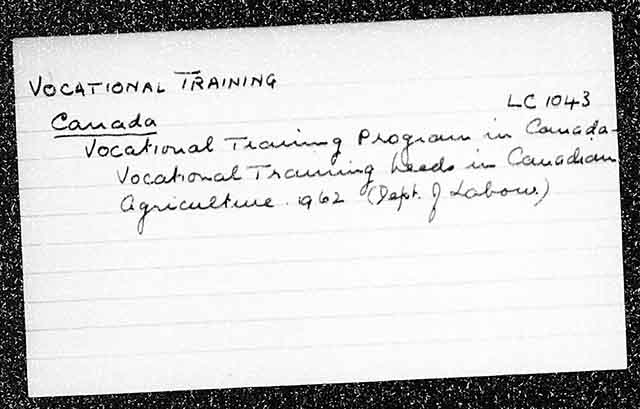 VOCATIONAL TRAINING
LC 1043
Canada
Vocational Training Program in Canada -
Vocational Training Needs in Canadian
Agriculture. 1962 (Dept. of Labour.)